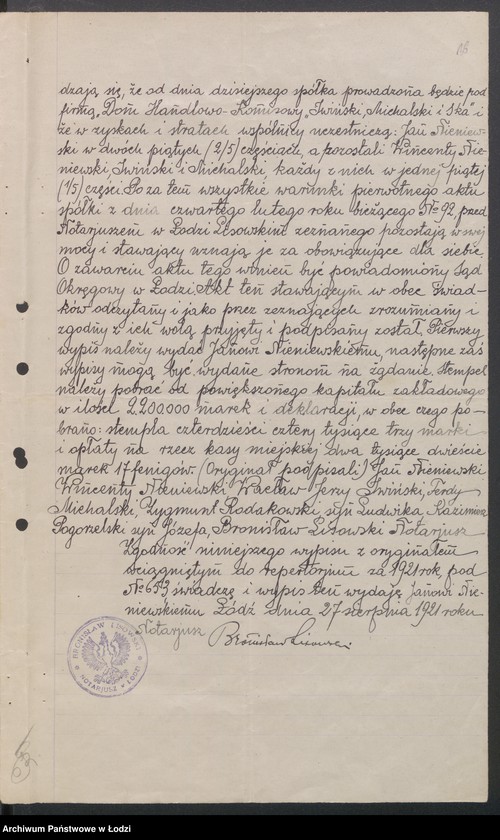 18
dzają się, że od dnia dzisiejszego spółka prowadzona będzie pod
firmą „Dom Handlowo-Komisowy „Iwiński, Michalski i S-ka” i
że w zyskach i stratach wspólnicy uczestniczą: Jan Nieniew-
ski w dwóch piątych (2/5) częściach, a pozostali Wincenty Nie-
niewski, Iwiński i Michalski, każdy z nich w jednej piątej
(1/5) części. Po za tem wszystkie warunki pierwotnego aktu
spółki z dnia czwartego lutego roku bieżącego № 92, przed
Notarjuszem w Łodzi Lisowskim zeznanego pozostają w swej
mocy i stawający uznają je za obowiązujące dla siebie.
O zawarciu aktu tego winien być powiadomiony Sąd
Okręgowy w Łodzi. Akt ten stawającym w obec świad-
ków odczytany i jako przez zeznających zrozumiany i
zgodny z ich wolą przyjęty i podpisany został. Pierwszy
wypis należy wydać Janowi Nieniewskiemu, następne zaś
wypisy mogą być wydane stronom na żądanie. Stempel
należy pobrać od powiększonego kapitału zakładowego
w ilości 2.200.000 marek i deklaracji, w obec czego po-
brano: stempla czterdzieści cztery tysiące trzy marki
i opłaty na rzecz kasy miejskiej dwa tysiące dwieście
marek 17 fenigów. (Oryginał podpisali:) Jan Nieniewski
Wincenty Nieniewski, Wacław Jerzy Iwiński, Ferdy
Michalski, Zygmunt Rodakowski syn Ludwika, Kazimierz
Pogorzelski syn Józefa, Bronisław Lisowski Notarjusz
Zgodność niniejszego wypisu z oryginałem
wciągniętym do repertorjum za 1921 rok, pod
№ 653 świadczę i wypis ten wydaję Janowi Nie-
niewskiemu Łódź dnia 27 sierpnia 1921 roku
Notarjusz
NOTARJUSZ * ŁÓDŹ
Archiwum Państwowe w Łodzi